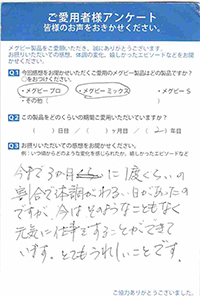 ご愛用者様アンケート
皆様のお声をおきかせください。
メグビー製品をご愛顧いただき、誠にありがとうございます。
お摂りいただいての感想、体調の変化、嬉しかったエピソードなどをお聞かせください。
Q1 今回感想をお聞かせいただくご愛用のメグビー製品はどの製品ですか?
○をおつけください。
・メグビー プロ ・メグビー ミックス ・メグビー S
・その他（ ）
Q2 この製品をどのくらいの期間ご愛用いただいていますか?
（ ）日目 ／（ ）ヶ月目 ／（ 2 ）年目
Q3 お摂りいただいての感想をお聞かせください。
例：いつ頃からどのような変化を感じられたか、嬉しかったエピソードなど
今まで3か月に1度くらいの
割合で体調がわるい日があったの
ですが、今はそのようなこともなく
元気に仕事をすることができて
います。とてもうれしいことです。
ご協力ありがとうございました。